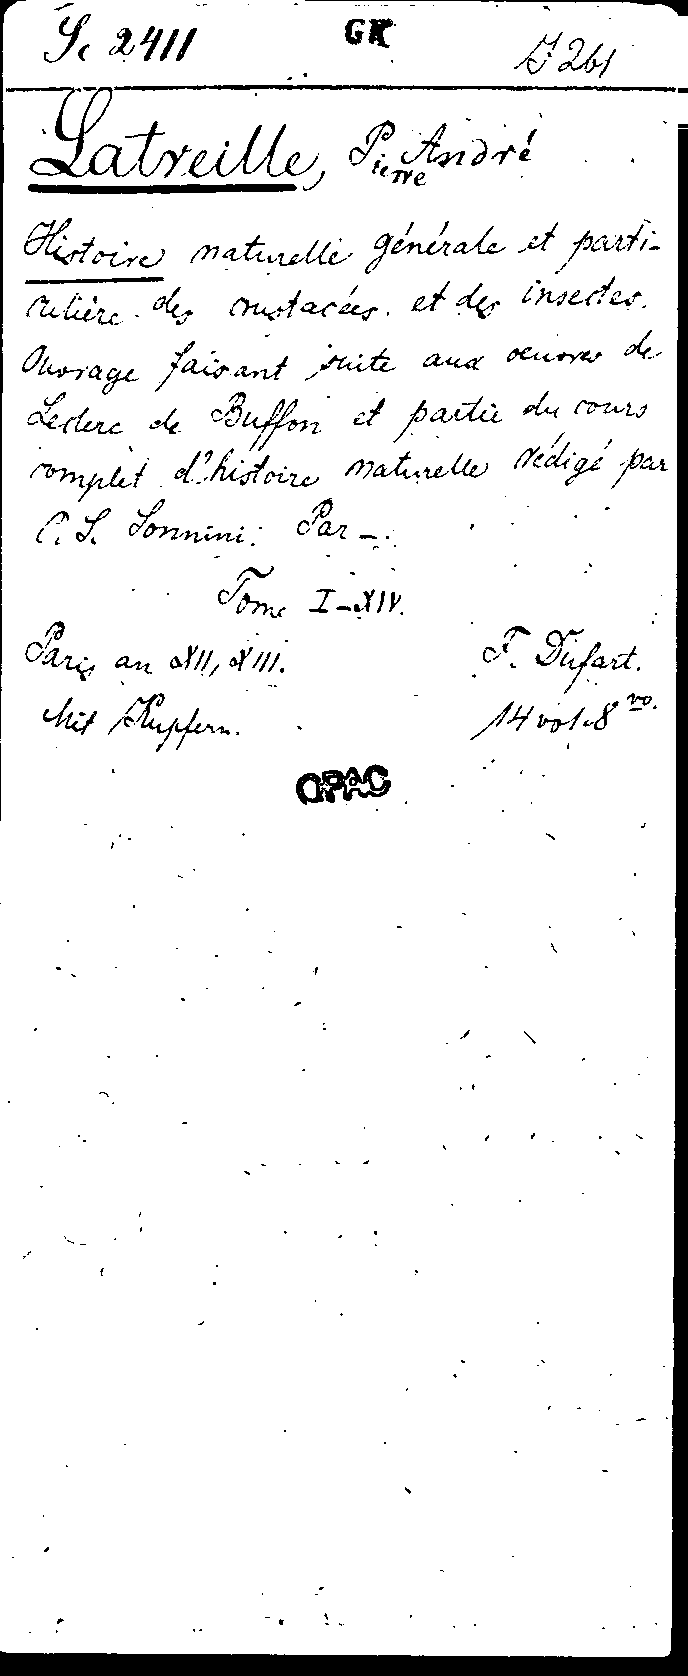 Sc 2411 GK J 261
Latreille, Pierre André
Histoire naturelle générale et parti-
culière des crustacées et des insectes.
Ouvrage faisant suite aux oeuvres de
Leclerc de Buffon et partie du cours
complet d'histoire naturelle rédigé par
C. S. Sonnini. Par –.
Tome I–XIV.
Paris an XII, XIII. F. Dufart.
Mit Kupfern. 14 vol. 8vo.
OPAC